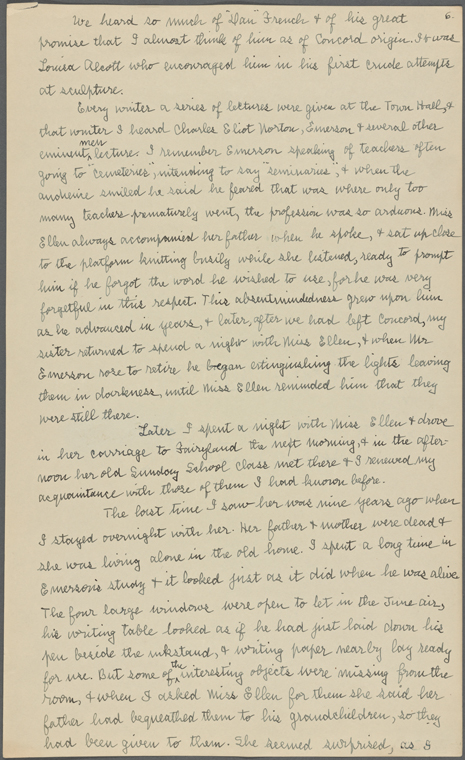 6.
We heard so much of "Dan" French & of his great
promise that I almost think of him as of Concord origin. It was
Louisa Alcott who encouraged him in his first crude attempts
at sculpture.
Every winter a series of lectures were given at the Town Hall, &
that winter I heard Charles Eliot Norton, Emerson & several other
eminent men lecture. I remember Emerson speaking of teachers often
going to "cemeteries", intending to say "seminaries", & when the
audience smiled he said he feared that was where only too
many teachers prematurely went, the profession was so arduous. Miss
Ellen always accompanied her father when he spoke, & sat up close
to the platform knitting busily while she listened, ready to prompt
him if he forgot the word he wished to use, for he was very
forgetful in this respect. This absentmindedness grew upon him
as he advanced in years, & later, after we had left Concord, my
sister returned to spend a night with Miss Ellen, & when Mr
Emerson rose to retire he began extinguishing the lights leaving
them in darkness, until Miss Ellen reminded him that they
were still there.
Later I spent a night with Miss Ellen & drove
in her carriage to Fairyland the next morning, & in the after-
noon her old Sunday School class met there & I renewed my
acquaintance with those of them I had known before.
The last time I saw her was nine years ago when
I stayed overnight with her. Her father & mother were dead &
she was living alone in the old home. I spent a long time in
Emerson's study & it looked just as it did when he was alive.
The four large windows were open to let in the June air,
his writing table looked as if he had just laid down his
pen beside the inkstand, & writing paper nearby lay ready
for use. But some of the interesting objects were missing from the
room, & when I asked Miss Ellen for them she said her
father had bequeathed them to his grandchildren, so they
had been given to them. She seemed surprised, as I